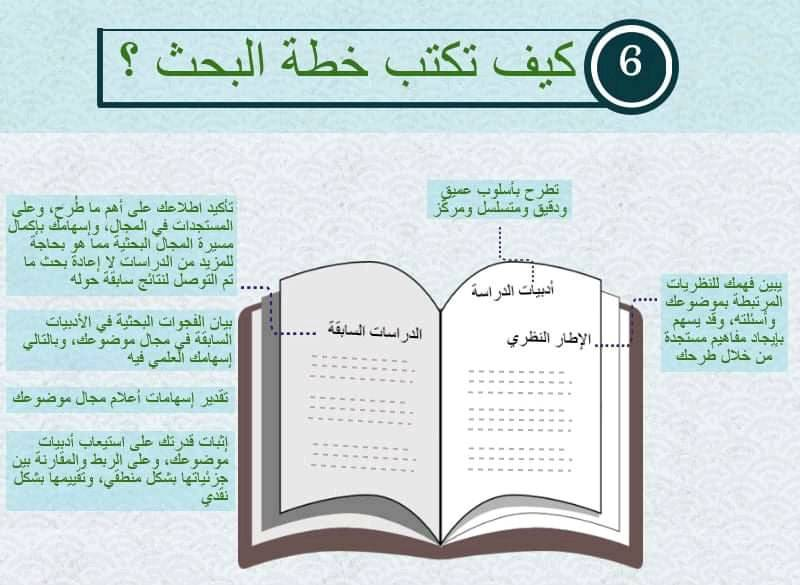 6
كيف تكتب خطة البحث ؟
تطرح بأسلوب عميق
ودقيق ومتسلسل ومركّز
أدبيات الدراسة
الإطار النظري
يبين فهمك للنظريات
المرتبطة بموضوعك
وأسئلته، وقد يسهم
بإيجاد مفاهيم مستجدة
من خلال طرحك
الدراسات السابقة
تأكيد اطلاعك على أهم ما طُرح، وعلى
المستجدات في المجال، وإسهامك بإكمال
مسيرة المجال البحثية مما هو بحاجة
للمزيد من الدراسات لا إعادة بحث ما
تم التوصل لنتائج سابقة حوله
بيان الفجوات البحثية في الأدبيات
السابقة في مجال موضوعك، وبالتالي
إسهامك العلمي فيه
تقدير إسهامات أعلام مجال موضوعك
إثبات قدرتك على استيعاب أدبيات
موضوعك، وعلى الربط والمقارنة بين
جزئياتها بشكل منطقي، وتقييمها بشكل
نقدي